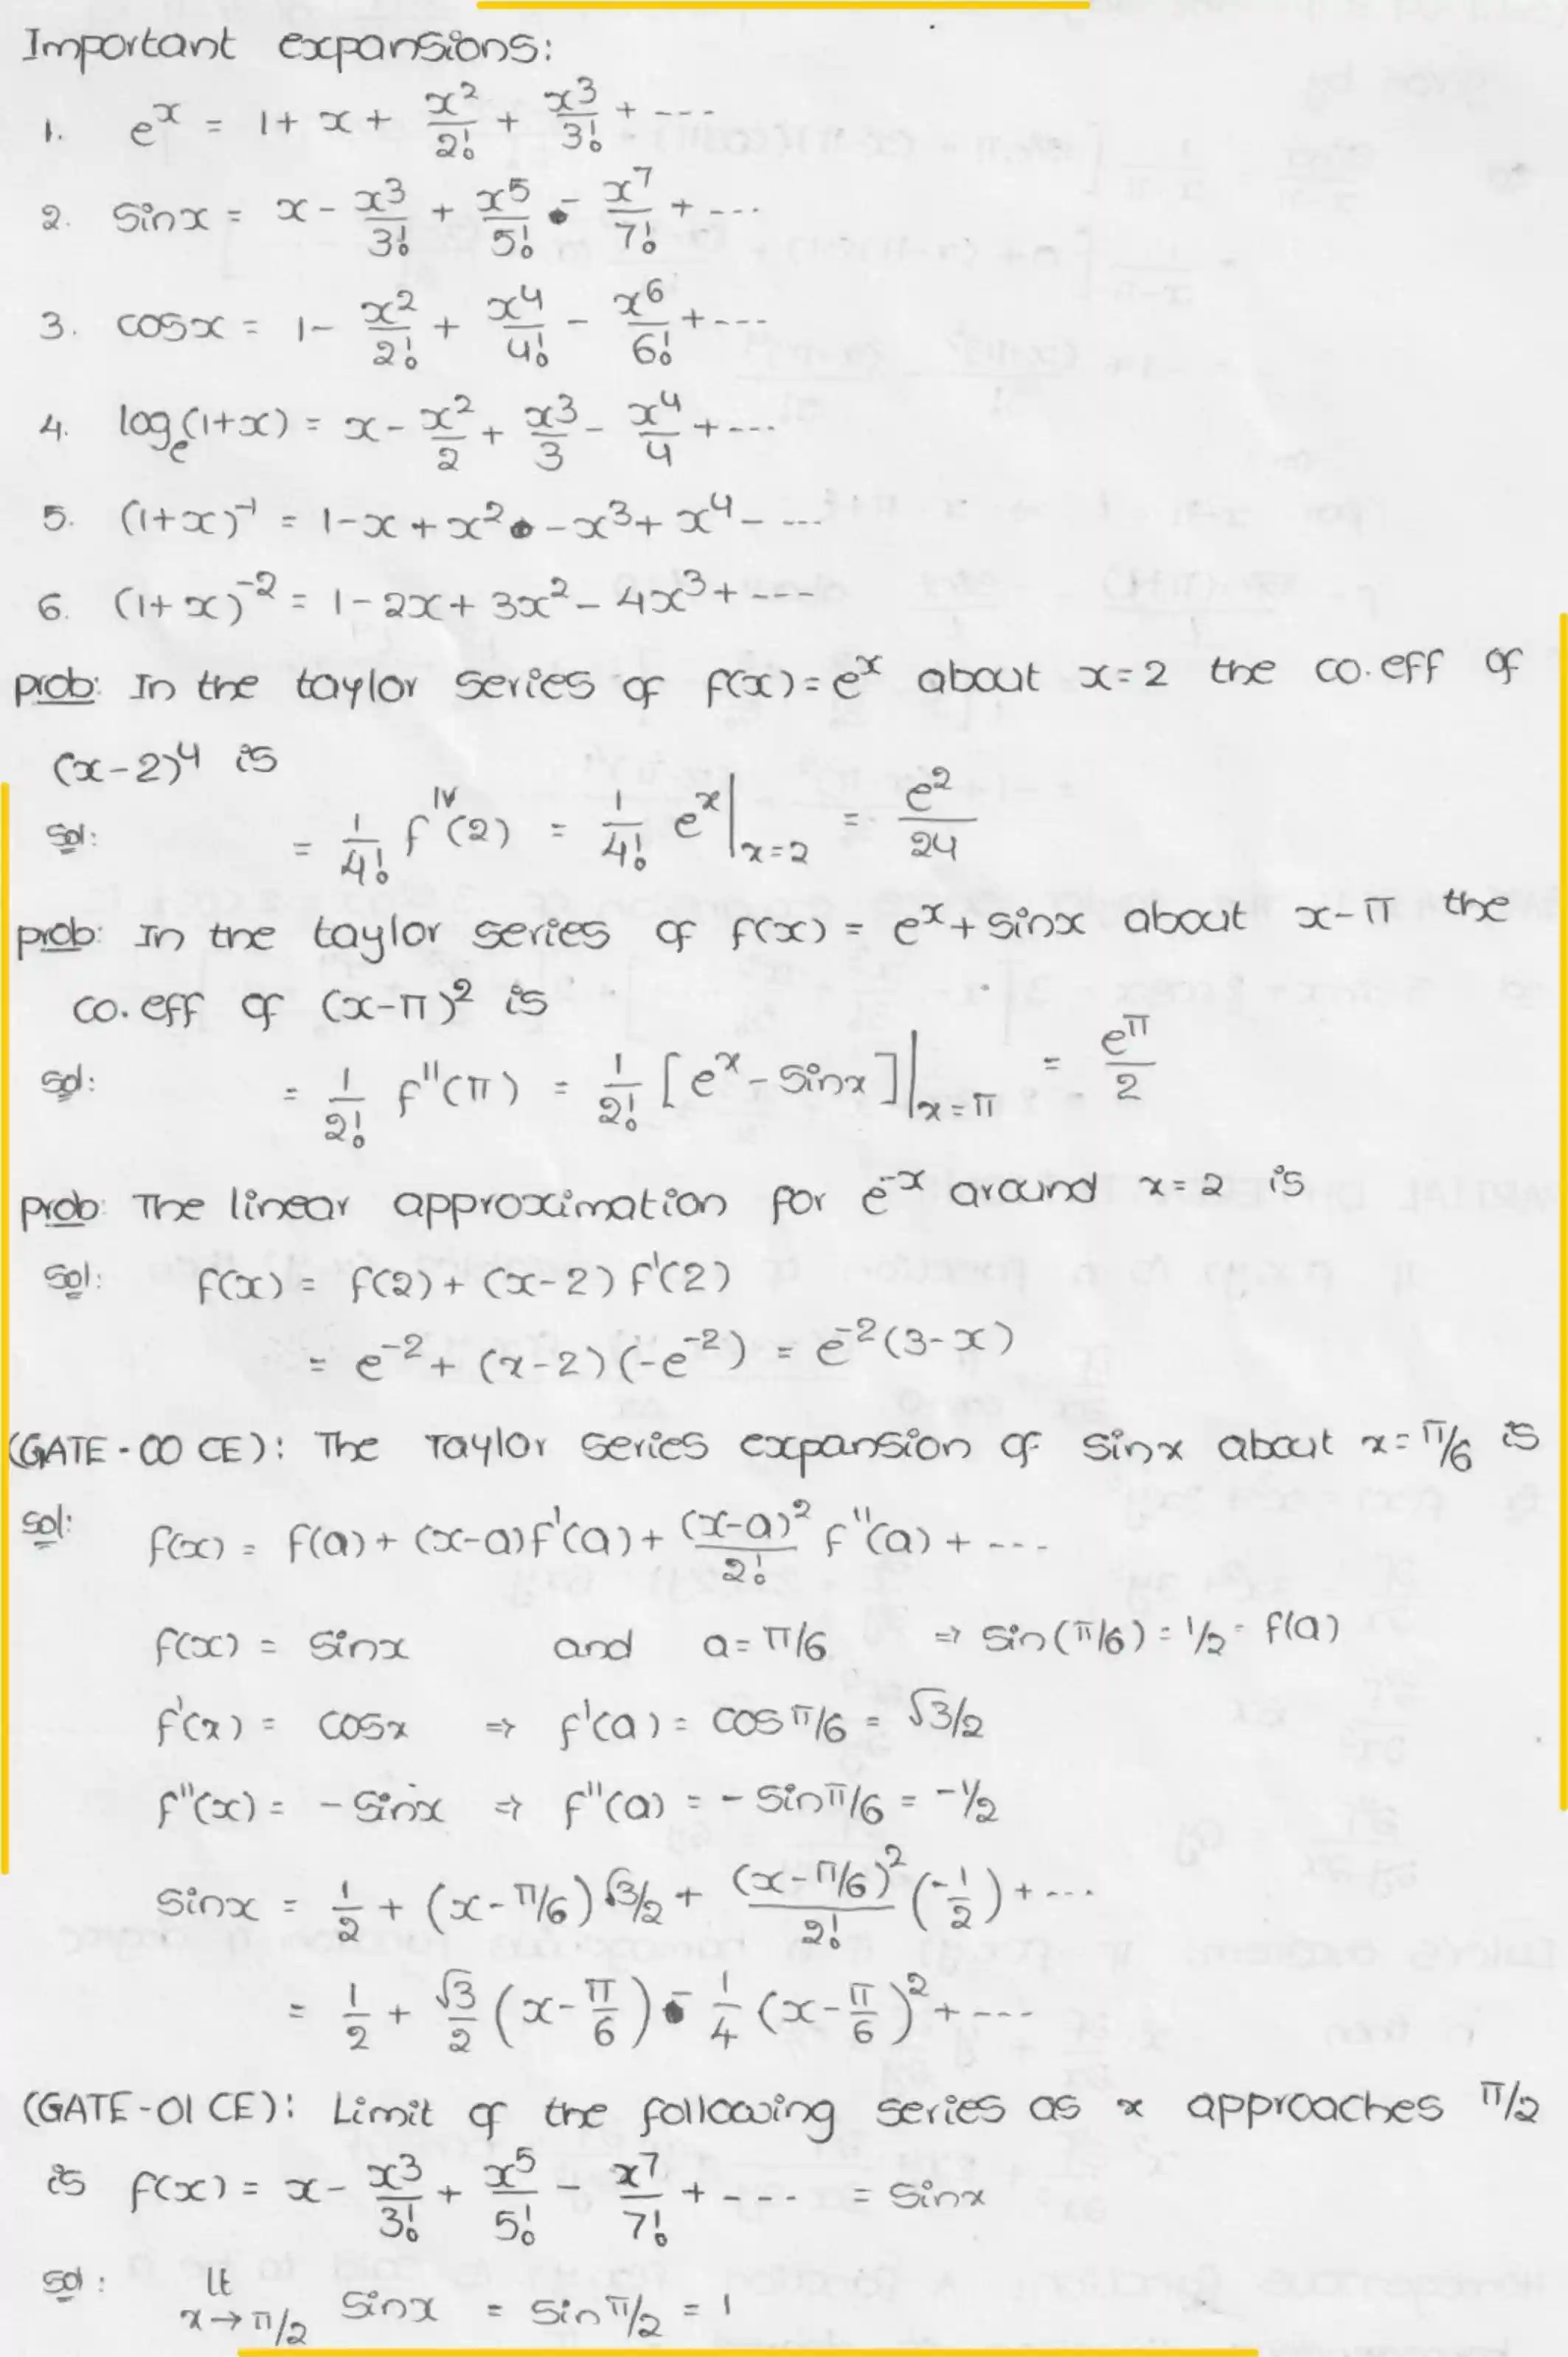 Important expansions:
1. eˣ = 1 + x + x²/2! + x³/3! + ----
2. Sinx = x - x³/3! + x⁵/5! - x⁷/7! + ---
3. cosx = 1 - x²/2! + x⁴/4! - x⁶/6! + ---
4. logₑ(1+x) = x - x²/2 + x³/3 - x⁴/4 + ---
5. (1+x)⁻¹ = 1 - x + x² - x³ + x⁴ - ---
6. (1+x)⁻² = 1 - 2x + 3x² - 4x³ + ---
prob: In the taylor series of f(x) = eˣ about x=2 the co.eff of
(x-2)⁴ is
Sol: = 1/4! fᴵⱽ(2) = 1/4! eˣ|ₓ₌₂ = e²/24
prob: In the taylor series of f(x) = eˣ + sinx about x-π the
co.eff of (x-π)² is
Sol: = 1/2! f''(π) = 1/2! [eˣ - Sinx]|ₓ₌π = e^π/2
prob: The linear approximation for e⁻ˣ around x=2 is
Sol: f(x) = f(2) + (x-2) f'(2)
= e⁻² + (x-2)(-e⁻²) = e⁻²(3-x)
(GATE-00 CE): The Taylor series expansion of sinx about x=π/6 is
Sol: f(x) = f(a) + (x-a)f'(a) + (x-a)²/2! f''(a) + ---
f(x) = Sinx and a = π/6 ⇒ Sin(π/6) = 1/2 = f(a)
f'(x) = cosx ⇒ f'(a) = cos π/6 = √3/2
f''(x) = - Sinx ⇒ f''(a) = - Sin π/6 = -1/2
Sinx = 1/2 + (x-π/6) √3/2 + (x-π/6)²/2! (-1/2) + ---
= 1/2 + √3/2 (x - π/6) - 1/4 (x - π/6)² + ---
(GATE-01 CE): Limit of the following series as x approaches π/2
is f(x) = x - x³/3! + x⁵/5! - x⁷/7! + ---- = Sinx
Sol: lt x→π/2 Sinx = Sin π/2 = 1